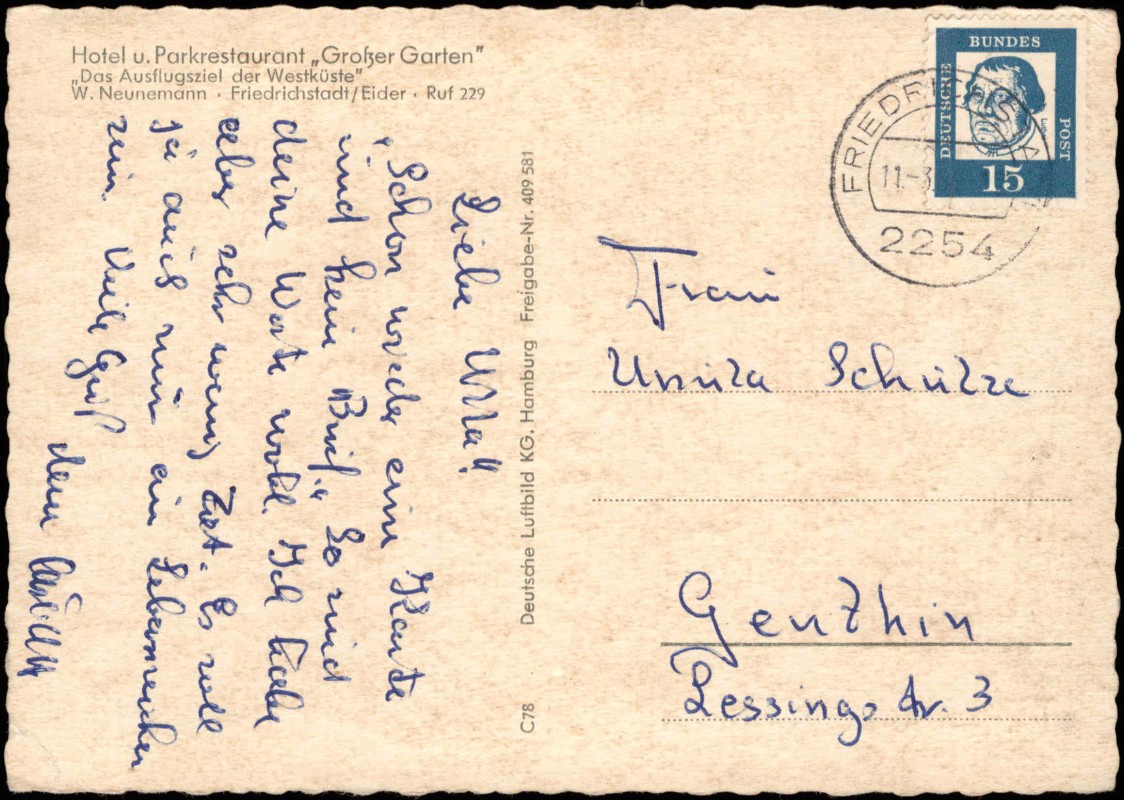 Hotel u. Parkrestaurant „Großer Garten"
„Das Ausflugsziel der Westküste"
W. Neunemann · Friedrichstadt/Eider · Ruf 229
Liebe
"Schon wieder eine Karte
und kein Brief", so sind
deine Worte wohl. Ich habe
aber sehr wenig Zeit. Es soll
ja auch nur ein Lebenszeichen
sein. Viele Grüße
dein
C78 Deutsche Luftbild KG. Hamburg Freigabe-Nr. 409 581
DEUTSCHE
BUNDES
POST
15
FRIEDRICHSTA
11.-3.
2254
Frau
Ursula Schulze
Genthin
Lessingstr. 3